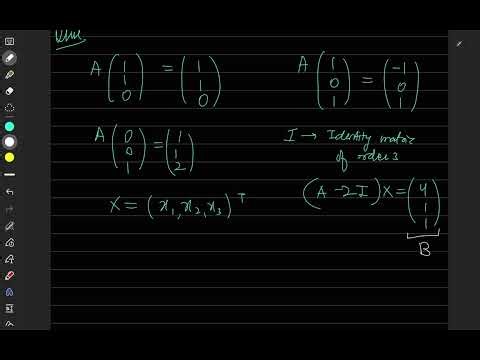 A (1 1 0) = (1 1 0)
A (1 0 1) = (-1 0 1)
A (0 0 1) = (1 1 2)
I → Identity matrix
of order 3
X = (x₁, x₂, x₃)ᵀ
(A - 2I)X = (4 1 1)
B